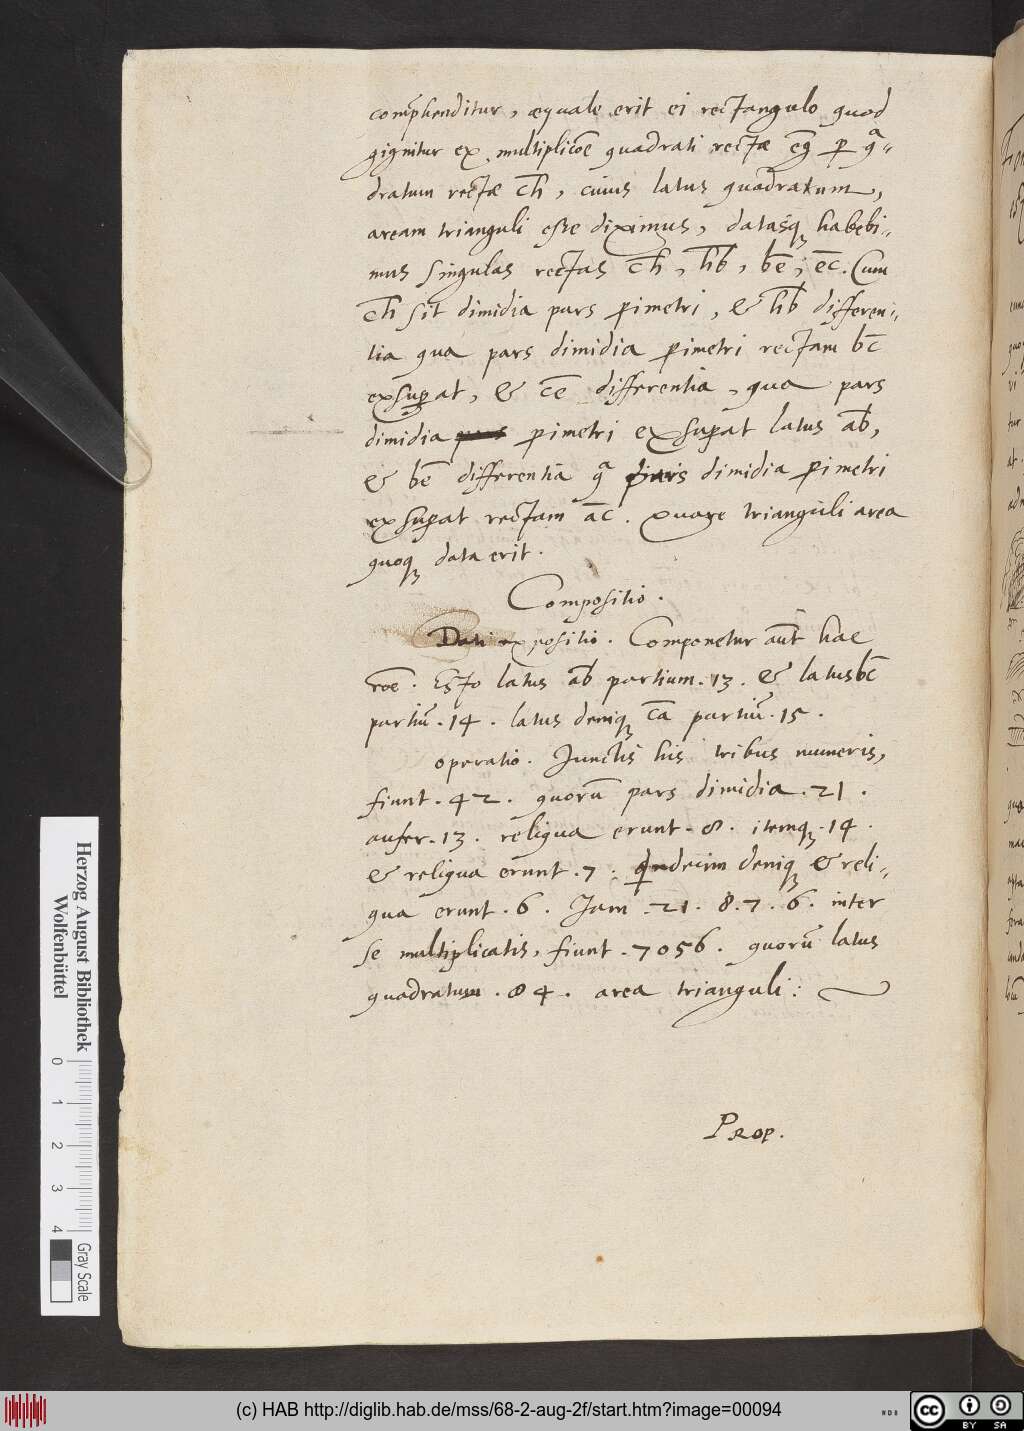 comp̃henditur, æquale erit ei rectangulo quod
gignitur ex multiplicōe quadrati rectæ eg̅ p qᵃ-
dratum rectæ ch̅, cuius latus quadratum,
aream trianguli esse diximus, datasq́ꝫ habebi-
mus singulas rectas ch̅, hb̅, be̅, ec̅. Cum
ch̅ sit dimidia pars pimetri, & hb̅ differen-
tia qua pars dimidia pimetri rectam bc̅
exsupat, & ce̅ differentia, qua pars
dimidia pimetri exsupat latus ab̅,
& be̅ differentia qᵃ pars dimidia pimetri
exsupat rectam ac̅. Quare trianguli area
quoqꝫ data erit.
Compositio.
Dati expositio. Componetur aut̅ hac
rōe. Esto latus ab̅ partium .13. & latus bc̅
partiū .14. latus deniqꝫ ca̅ partiū .15.
operatio. Junctis his tribus numeris,
fiunt .42. quorū pars dimidia .21.
aufer .13. reliqua erunt .8. itemqꝫ .14.
& reliqua erunt .7. quindecim deniqꝫ & reli-
qua erunt .6. Jam .21. 8. 7. 6. inter
se multiplicatis, fiunt .7056. quorū latus
quadratum .84. area trianguli:
Prop.
Herzog August Bibliothek
Wolfenbüttel
0 1 2 3 4
Gray Scale
(c) HAB http://diglib.hab.de/mss/68-2-aug-2f/start.htm?image=00094
cc BY SA